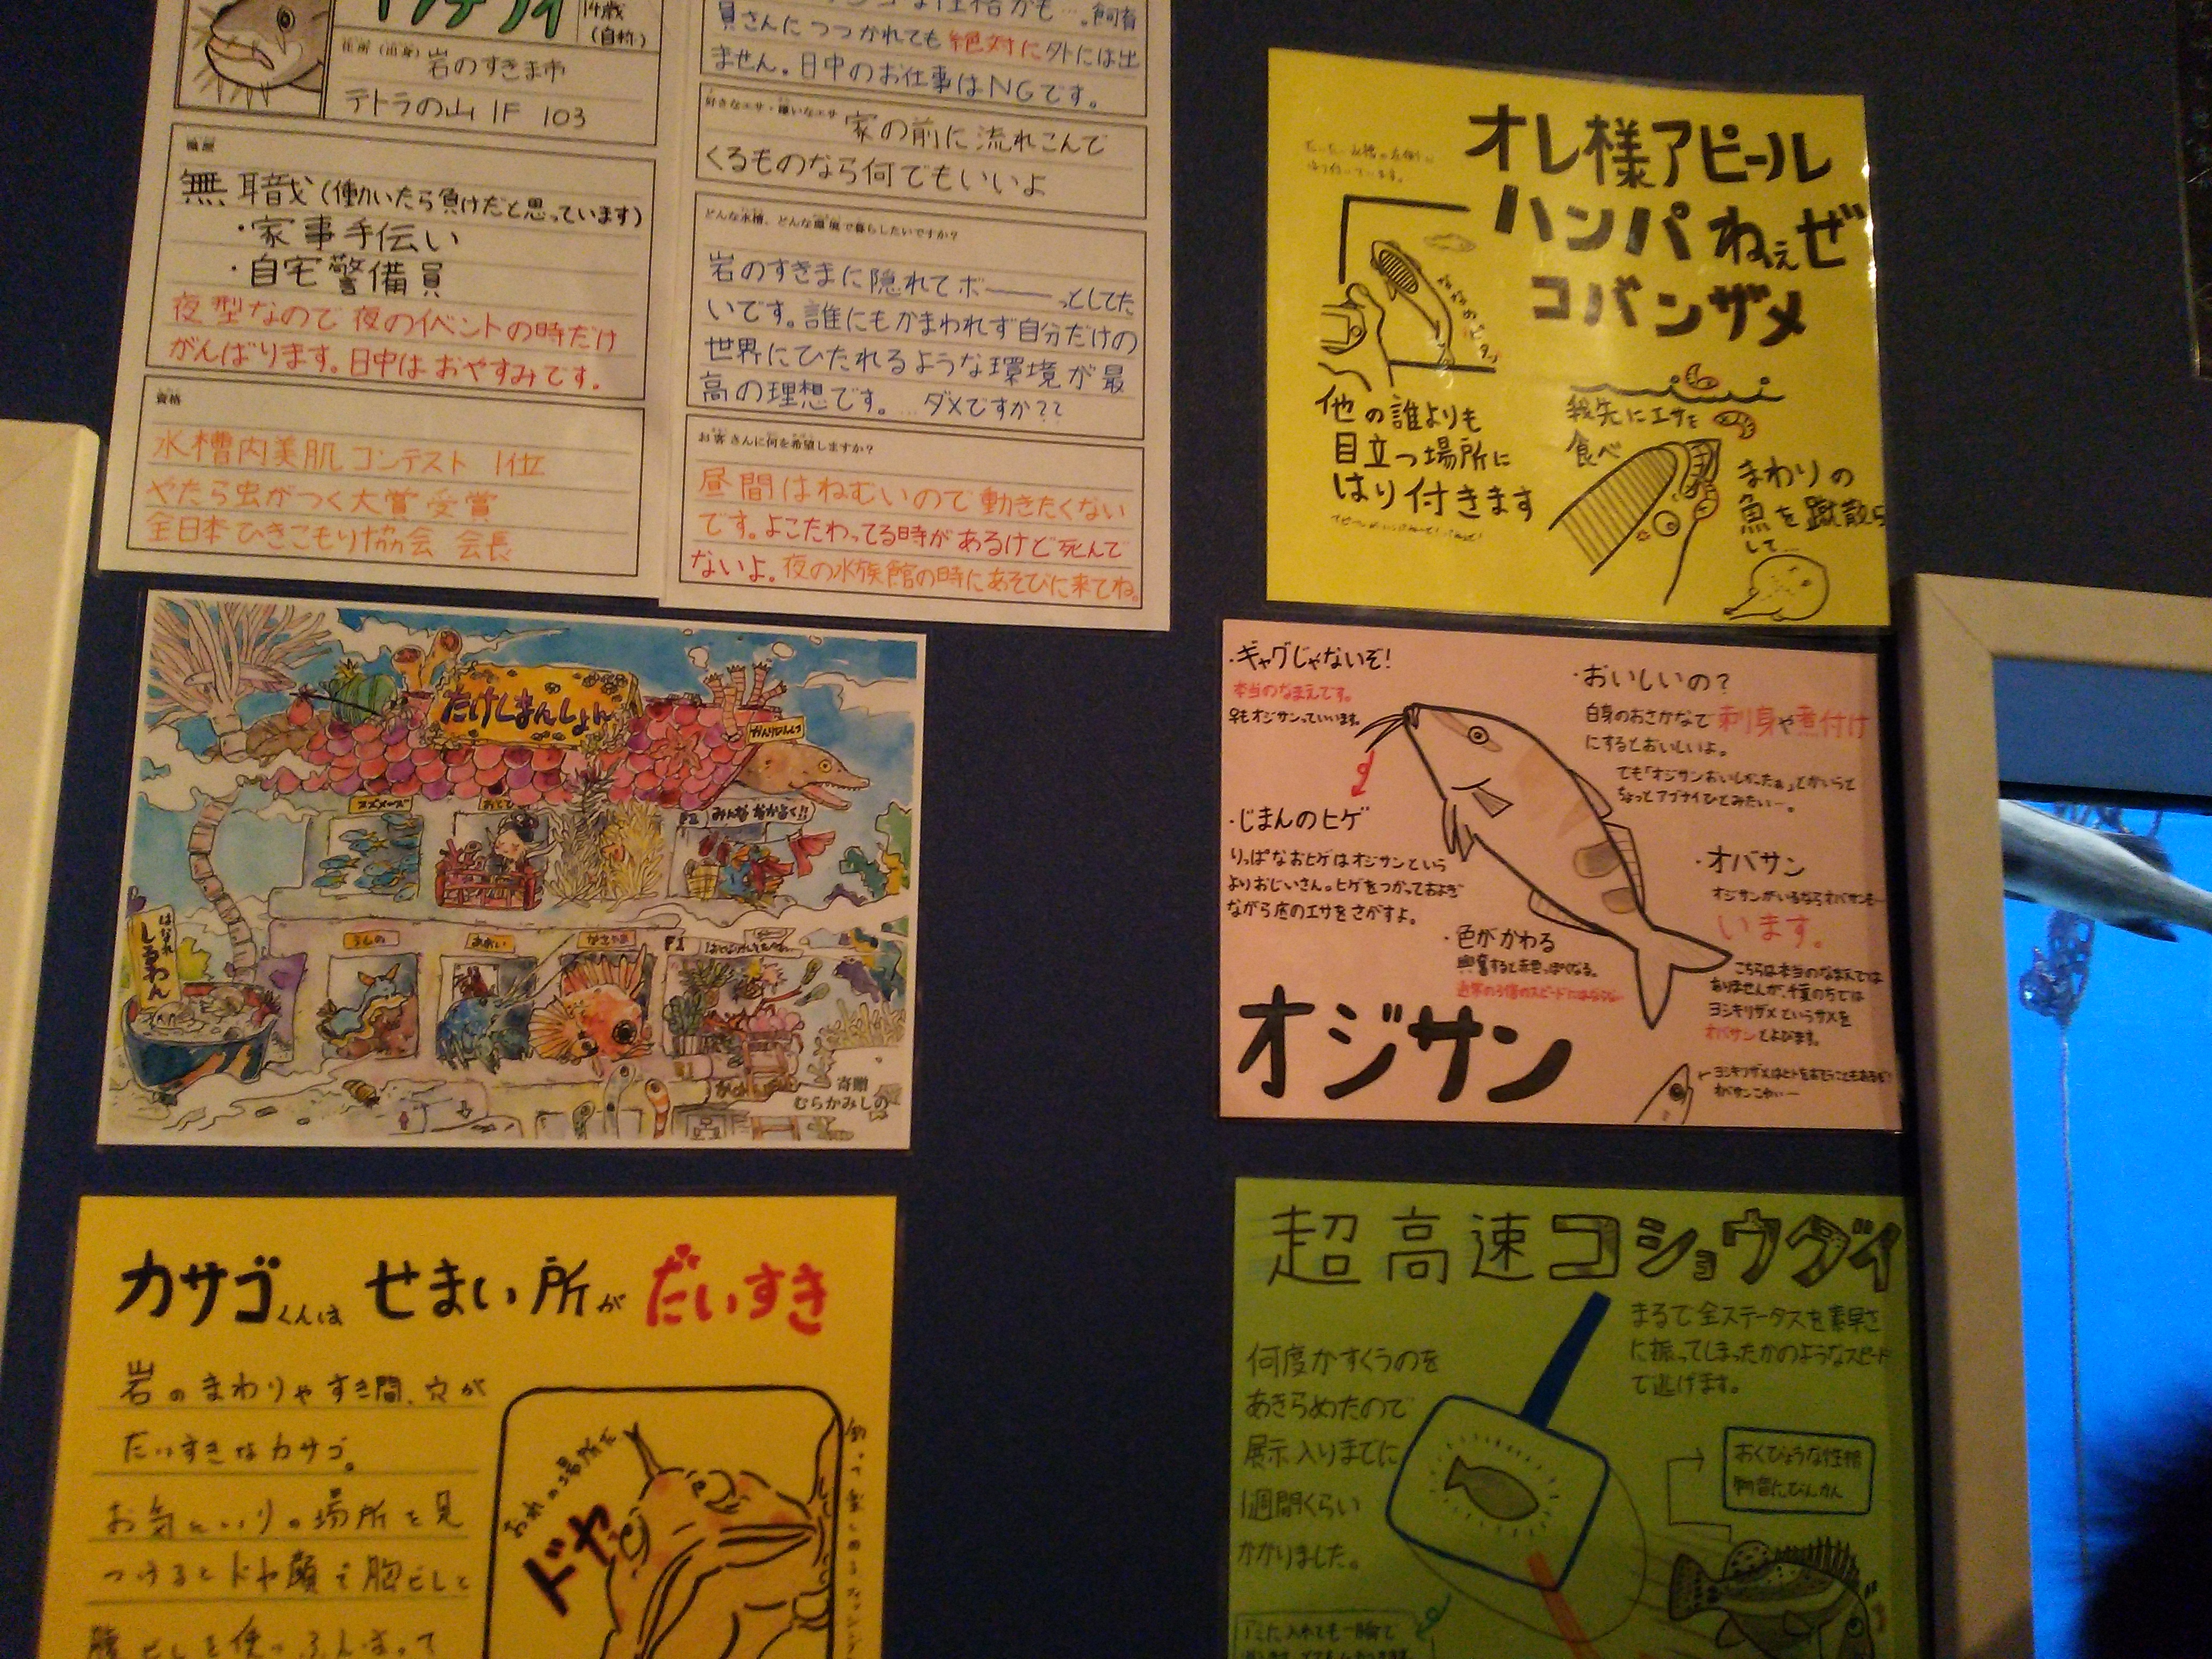 14歳
(自称)
住所(出身) 岩のすきま市
テトラの山 1F 103
職歴
無職(働いたら負けだと思っています)
・家事手伝い
・自宅警備員
夜型なので夜のイベントの時だけ
がんばります。日中はおやすみです。
資格
水槽内美肌コンテスト 1位
やたら虫がつく大賞 受賞
全日本ひきこもり協会 会長
員さんにつつかれても絶対に外には出
ません。日中のお仕事はNGです。
好きなエサ・嫌いなエサ 家の前に流れこんで
くるものなら何でもいいよ
どんな水槽、どんな環境で暮らしたいですか?
岩のすきまに隠れてボーーーっとしてた
いです。誰にもかまわれず自分だけの
世界にひたれるような環境が最
高の理想です。…ダメですか??
お客さんに何を希望しますか?
昼間はねむいので動きたくない
です。よこたわってる時があるけど死んで
ないよ。夜の水族館の時にあそびに来てね。
オレ様アピール
ハンパねぇぜ
コバンザメ
他の誰よりも
目立つ場所に
はり付きます
我先にエサを
食べ
まわりの
魚を蹴散ら
して…
たけしまんしょん
みんななかよく!!
はなれ
しるわん
寄贈
むらかみしの
・ギャグじゃないぞ!
本当のなまえです。
・じまんのヒゲ
りっぱなおヒゲはオジサンという
よりおじいさん。ヒゲをつかっておよぎ
ながら底のエサをさがすよ。
・色がかわる
興奮すると赤色っぽくなる。
オジサン
・おいしいの?
白身のおさかなで刺身や煮付け
にするとおいしいよ。
でも「オジサンおいしかったぁ」とかいうと
ちょっとアブナイひとみたい…。
・オバサン
オジサンがいるならオバサンも…
います。
こちらは本当のなまえでは
ありませんが、千葉の方では
ヨシキリザメというサメを
オバサンとよびます。
カサゴくんはせまい所がだいすき
岩のまわりやすき間、穴が
だいすきなカサゴ。
お気にいりの場所を見
つけるとドヤ顔で胸ビレと
腹ビレを使いふんばって
おれの場所だ
ドヤ
超高速コショウダイ
何度かすくうのを
あきらめたので
展示入りまでに
1週間くらい
かかりました。
まるで全ステータスを素早さ
に振ってしまったかのようなスピード
で逃げます。
おくびょうな性格
物音にびんかん